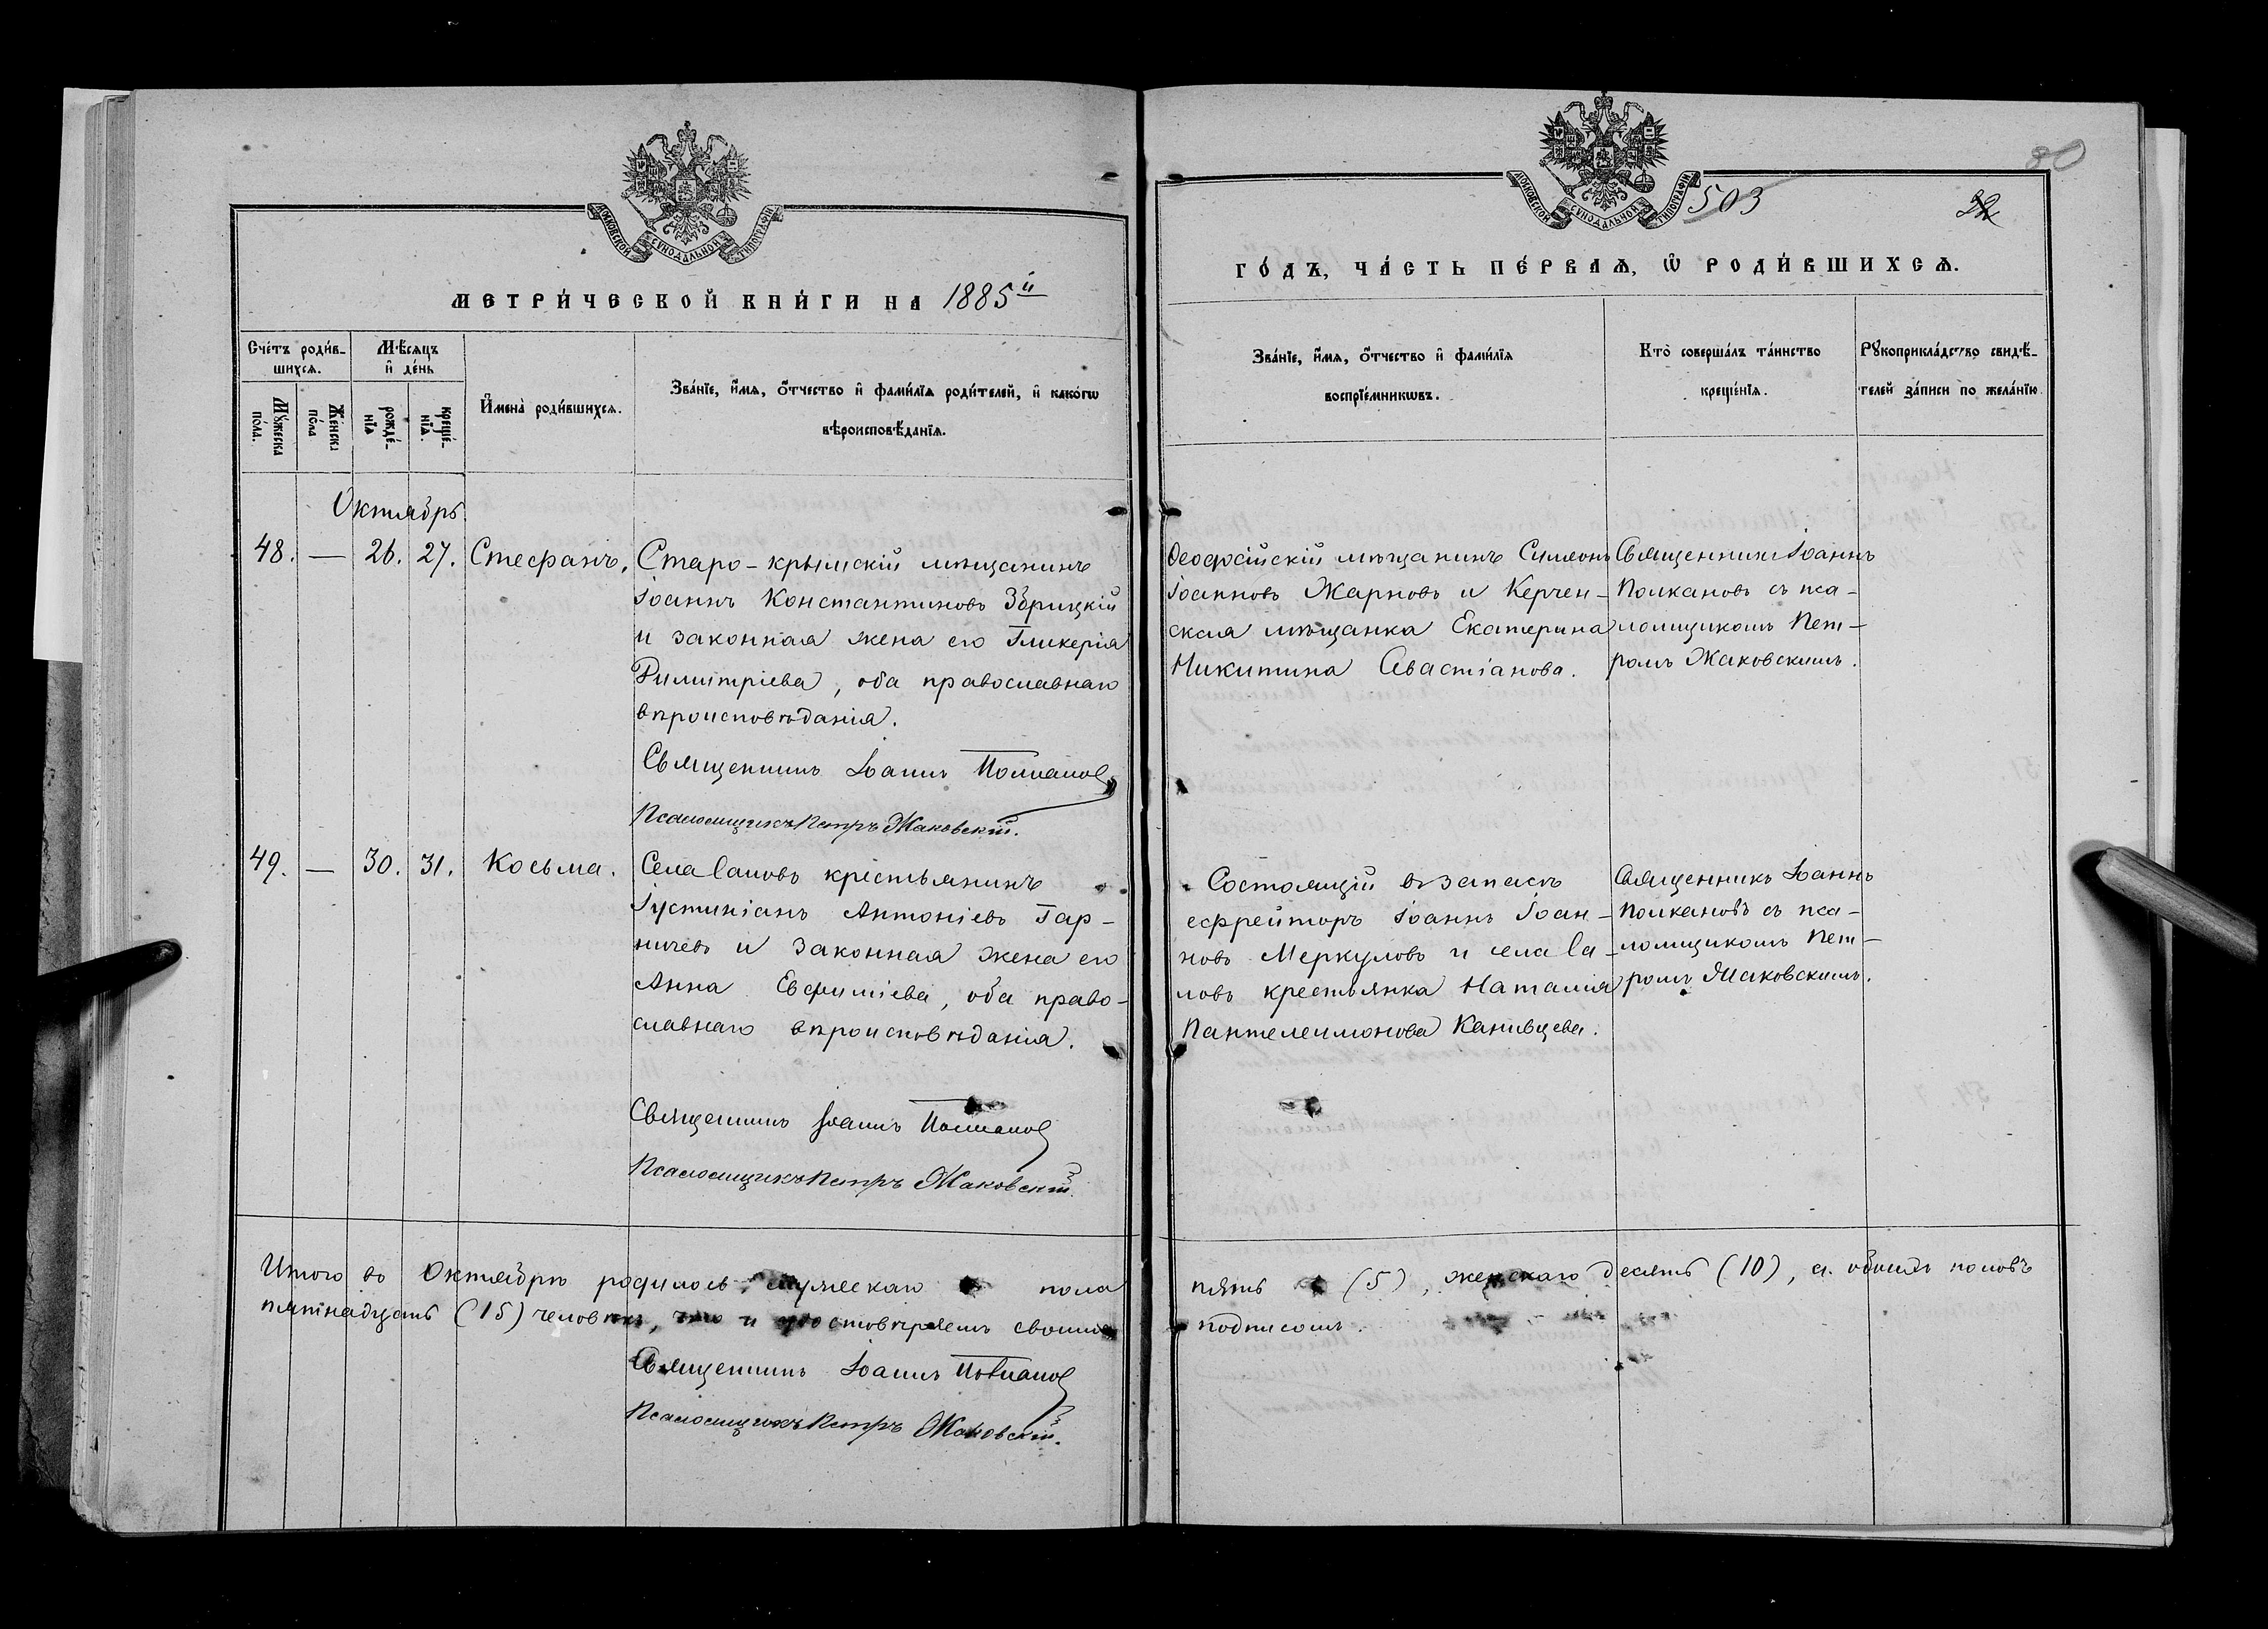 МОСКОВСКОЙ СѴНОДАЛЬНОЙ ТИПОГРАФІИ
МЕТРИ́ЧЕСКОЙ КНИ́ГИ НА 1885й
Сче́тъ роди́в-
шихсѧ.
Мѣ́сѧцъ
и҆ де́нь
Мꙋ́жеска
пола.
Же́нска
по́ла
рожде́-
нїѧ
креще́-
нїѧ.
И҆мена̀ роди́вшихсѧ.
Зва́нїе, и҆́мѧ, ѻ҆́тчество и҆ фами́лїѧ роди́телей, и҆ како́гѡ
вѣроисповѣ́данїѧ.
Октябрь
48. — 26. 27. Стефанъ. Старо-крымскій мѣщанинъ
Іоаннъ Константиновъ Збрицкій
и законная жена его Гликерія
Димитріева, оба православнаго
вѣроисповѣданія.
Священникъ Іоаннъ Полкановъ
Псаломщикъ Петръ Маковскій.
49. — 30. 31. Косьма. Села Саловъ крестьянинъ
Іустиніанъ Антоніевъ Гар-
ничевъ и законная жена его
Анна Евфиміева, оба право-
славнаго вѣроисповѣданія.
Священникъ Іоаннъ Полкановъ
Псаломщикъ Петръ Маковскій.
Итого въ Октябрѣ родилось мужескаго пола
пятнадцать (15) человѣкъ, что и удостовѣряемъ своимъ
Священникъ Іоаннъ Полкановъ
Псаломщикъ Петръ Маковскій.
80
МОСКОВСКОЙ СѴНОДАЛЬНОЙ ТИПОГРАФІИ
503
22
ГО́ДЪ, ЧА́СТЬ ПЕ́РВАѦ, Ѡ҆ РОДИ́ВШИХСѦ.
Зва́нїе, и҆́мѧ, ѻ҆́тчество и҆ фами́лїѧ
воспрїе́мникѡвъ.
Кто̀ соверша́лъ та́инство
креще́нїѧ.
Рꙋкоприкла́дство свидѣ́-
телей за́писи по жела́нїю
Ѳеодосійскій мѣщанинъ Симеонъ
Іоанновъ Жарновъ и Керчен-
ская мѣщанка Екатерина
Никитина Авастіанова.
Священникъ Іоаннъ
Полкановъ съ пса-
ломщикомъ Пет-
ромъ Маковскимъ.
Состоящій въ запасѣ
ефрейторъ Іоаннъ Іоан-
новъ Меркуловъ и села Са-
ловъ крестьянка Наталія
Пантелеимонова Канивцева.
Священникъ Іоаннъ
Полкановъ съ пса-
ломщикомъ Пет-
ромъ Маковскимъ.
пять (5), женскаго десять (10), а обоихъ половъ
подписомъ.